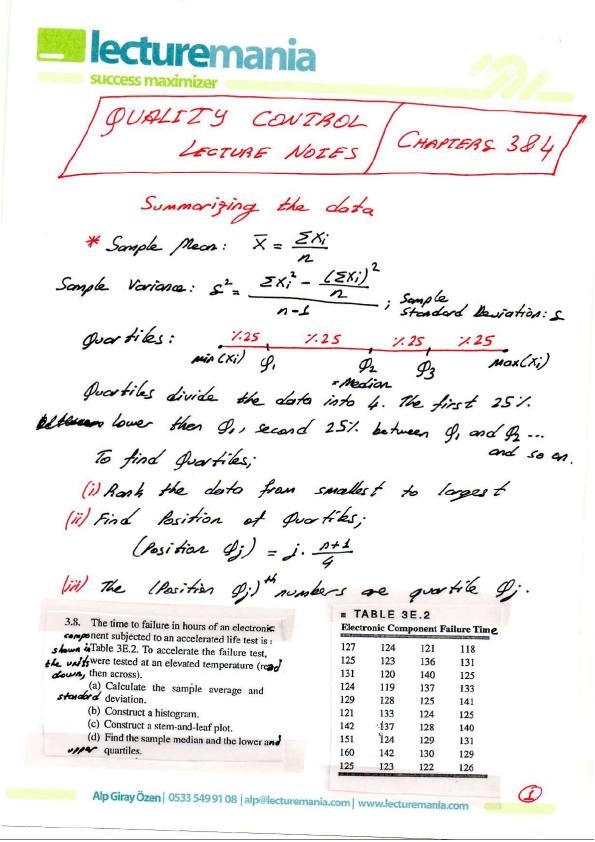 lecturemania
success maximizer
QUALITY CONTROL
LECTURE NOTES
CHAPTERS 3&4
Summarizing the data
* Sample Mean: X̄ = ΣXi / n
Sample Variance: s² = (ΣXi² - (ΣXi)²/n) / (n-1) ; Sample Standard Deviation: s
Quartiles: %25 %25 %25 %25
min(Xi) Q1 Q2 = Median Q3 Max(Xi)
Quartiles divide the data into 4. The first 25%
lower then Q1, second 25% between Q1 and Q2 ...
and so on.
To find Quartiles;
(i) Rank the data from smallest to largest
(ii) Find Position of Quartiles;
(Position Qj) = j. (n+1)/4
(iii) The (Position Qj)th numbers are quartile Qj.
3.8. The time to failure in hours of an electronic
component subjected to an accelerated life test is
shown in Table 3E.2. To accelerate the failure test,
the units were tested at an elevated temperature (read
down, then across).
(a) Calculate the sample average and
standard deviation.
(b) Construct a histogram.
(c) Construct a stem-and-leaf plot.
(d) Find the sample median and the lower and
upper quartiles.
■ TABLE 3E.2
Electronic Component Failure Time
127 124 121 118
125 123 136 131
131 120 140 125
124 119 137 133
129 128 125 141
121 133 124 125
142 137 128 140
151 124 129 131
160 142 130 129
125 123 122 126
Alp Giray Özen | 0533 549 91 08 | alp@lecturemania.com | www.lecturemania.com
1